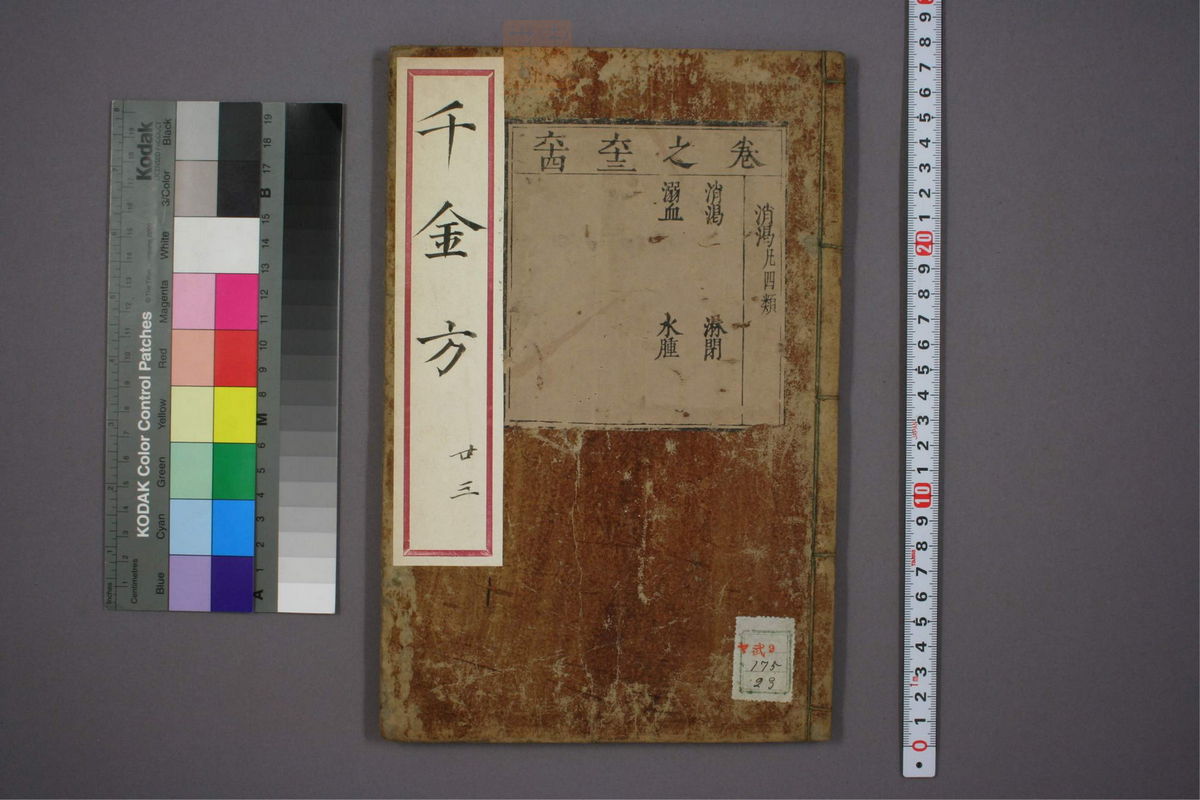 卷之六十三六十四
消渴凡四類
消渴 淋閉
溺血 水腫
千金方
廿三
武9
175
23
Kodak
KODAK Color Control Patches
© The Tiffen Company, 2000
Inches
Centimetres
Blue
Cyan
Green
Yellow
Red
Magenta
White
3/Color
Black
A 1 2 3 4 5 6 M 8 9 10 11 12 13 14 15 B 17 18 19
0 1 2 3 4 5 6 7 8 9 10 1 2 3 4 5 6 7 8 9 20 1 2 3 4 5 6 7 8 9